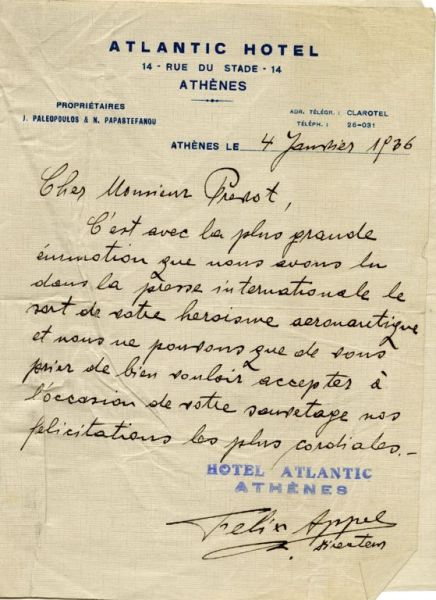 ATLANTIC HOTEL
14 - RUE DU STADE - 14
ATHÈNES
PROPRIÉTAIRES
J. PALEOPOULOS & N. PAPASTEFANOU
ADR. TÉLÉGR. : CLAROTEL
TÉLÉPH. : 26-031
ATHÈNES LE 4 Janvier 1936
Cher Monsieur Prevot,
C'est avec la plus grande
émmotion que nous avons lu
dans la presse internationale le
sort de votre heroisme aeronautique
et nous ne pouvons que de vous
prier de bien vouloir accepter à
l'occasion de votre sauvetage nos
félicitations les plus cordiales.-
HOTEL ATLANTIC
ATHÈNES
Felix Appel
Directeur